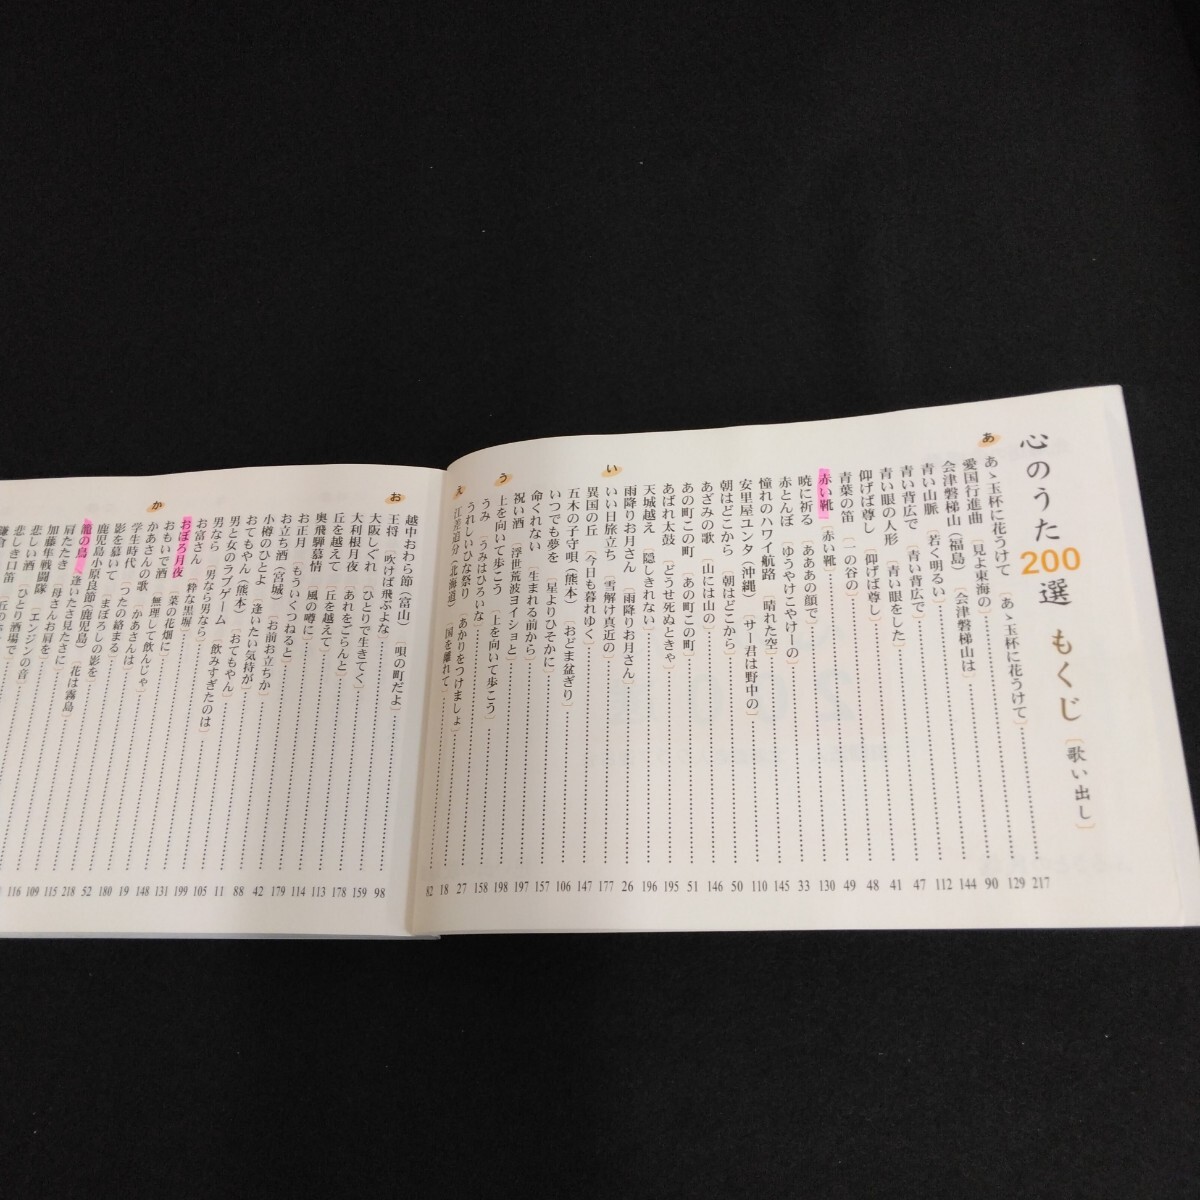 心のうた200選 もくじ［歌い出し］
あ
あゝ玉杯に花うけて［あゝ玉杯に花うけて］ 217
愛国行進曲［見よ東海の］ 129
会津磐梯山（福島）［会津磐梯山は］ 90
青い山脈［若く明るい］ 144
青い背広で［青い背広で］ 112
青い眼の人形［青い眼をした］ 47
仰げば尊し［仰げば尊し］ 41
青葉の笛［一の谷の］ 48
赤い靴［赤い靴］ 49
暁に祈る［ああああの顔で］ 130
赤とんぼ［ゆうやけこやけーの］ 33
憧れのハワイ航路［晴れた空］ 145
安里屋ユンタ（沖縄）［サー君は野中の］ 110
朝はどこから［朝はどこから］ 50
あざみの歌［山には山の］ 146
あの町この町［あの町この町］ 51
あばれ太鼓［どうせ死ぬときゃ］ 195
天城越え［隠しきれない］ 196
雨降りお月さん［雨降りお月さん］ 26
い
いい日旅立ち［雪解け真近の］ 177
異国の丘［今日も暮れゆく］ 147
五木の子守唄（熊本）［おどま盆ぎり］ 106
いつでも夢を［星よりひそかに］ 157
命くれない［生まれる前から］ 197
祝い酒［浮世荒波ヨイショと］ 198
う
上を向いて歩こう［上を向いて歩こう］ 158
うみ［うみはひろいな］ 27
うれしいひな祭り［あかりをつけましょ］ 18
え
江差追分（北海道）［国を離れて］ 82
越中おわら節（富山）［唄の町だよ］ 98
お
王将［吹けば飛ぶよな］ 159
大阪しぐれ［ひとりで生きてく］ 178
大利根月夜［あれをごらんと］ 113
丘を越えて［丘を越えて］ 114
奥飛騨慕情［風の噂に］ 179
お正月［もういくつねると］ 42
お立ち酒（宮城）［お前お立ちか］ 88
小樽のひとよ［逢いたい気持が］ 11
おてもやん（熊本）［おてもやん］ 105
男と女のラブゲーム［飲みすぎたのは］ 199
男なら［男なら男なら］ 131
お富さん［粋な黒塀］ 148
おぼろ月夜［菜の花畑に］ 19
おもいで酒［無理して飲んじゃ］ 180
か
かあさんの歌［かあさんは］ 52
学生時代［つたの絡まる］ 218
影を慕いて［まぼろしの影を］ 115
鹿児島小原良節（鹿児島）［花は霧島］ 109
籠の鳥［逢いたさ見たさに］ 116
肩たたき［母さんお肩を］
加藤隼戦闘隊［エンジンの音］
悲しい酒［ひとり酒場で］
悲しき口笛［丘のホ
鎌倉